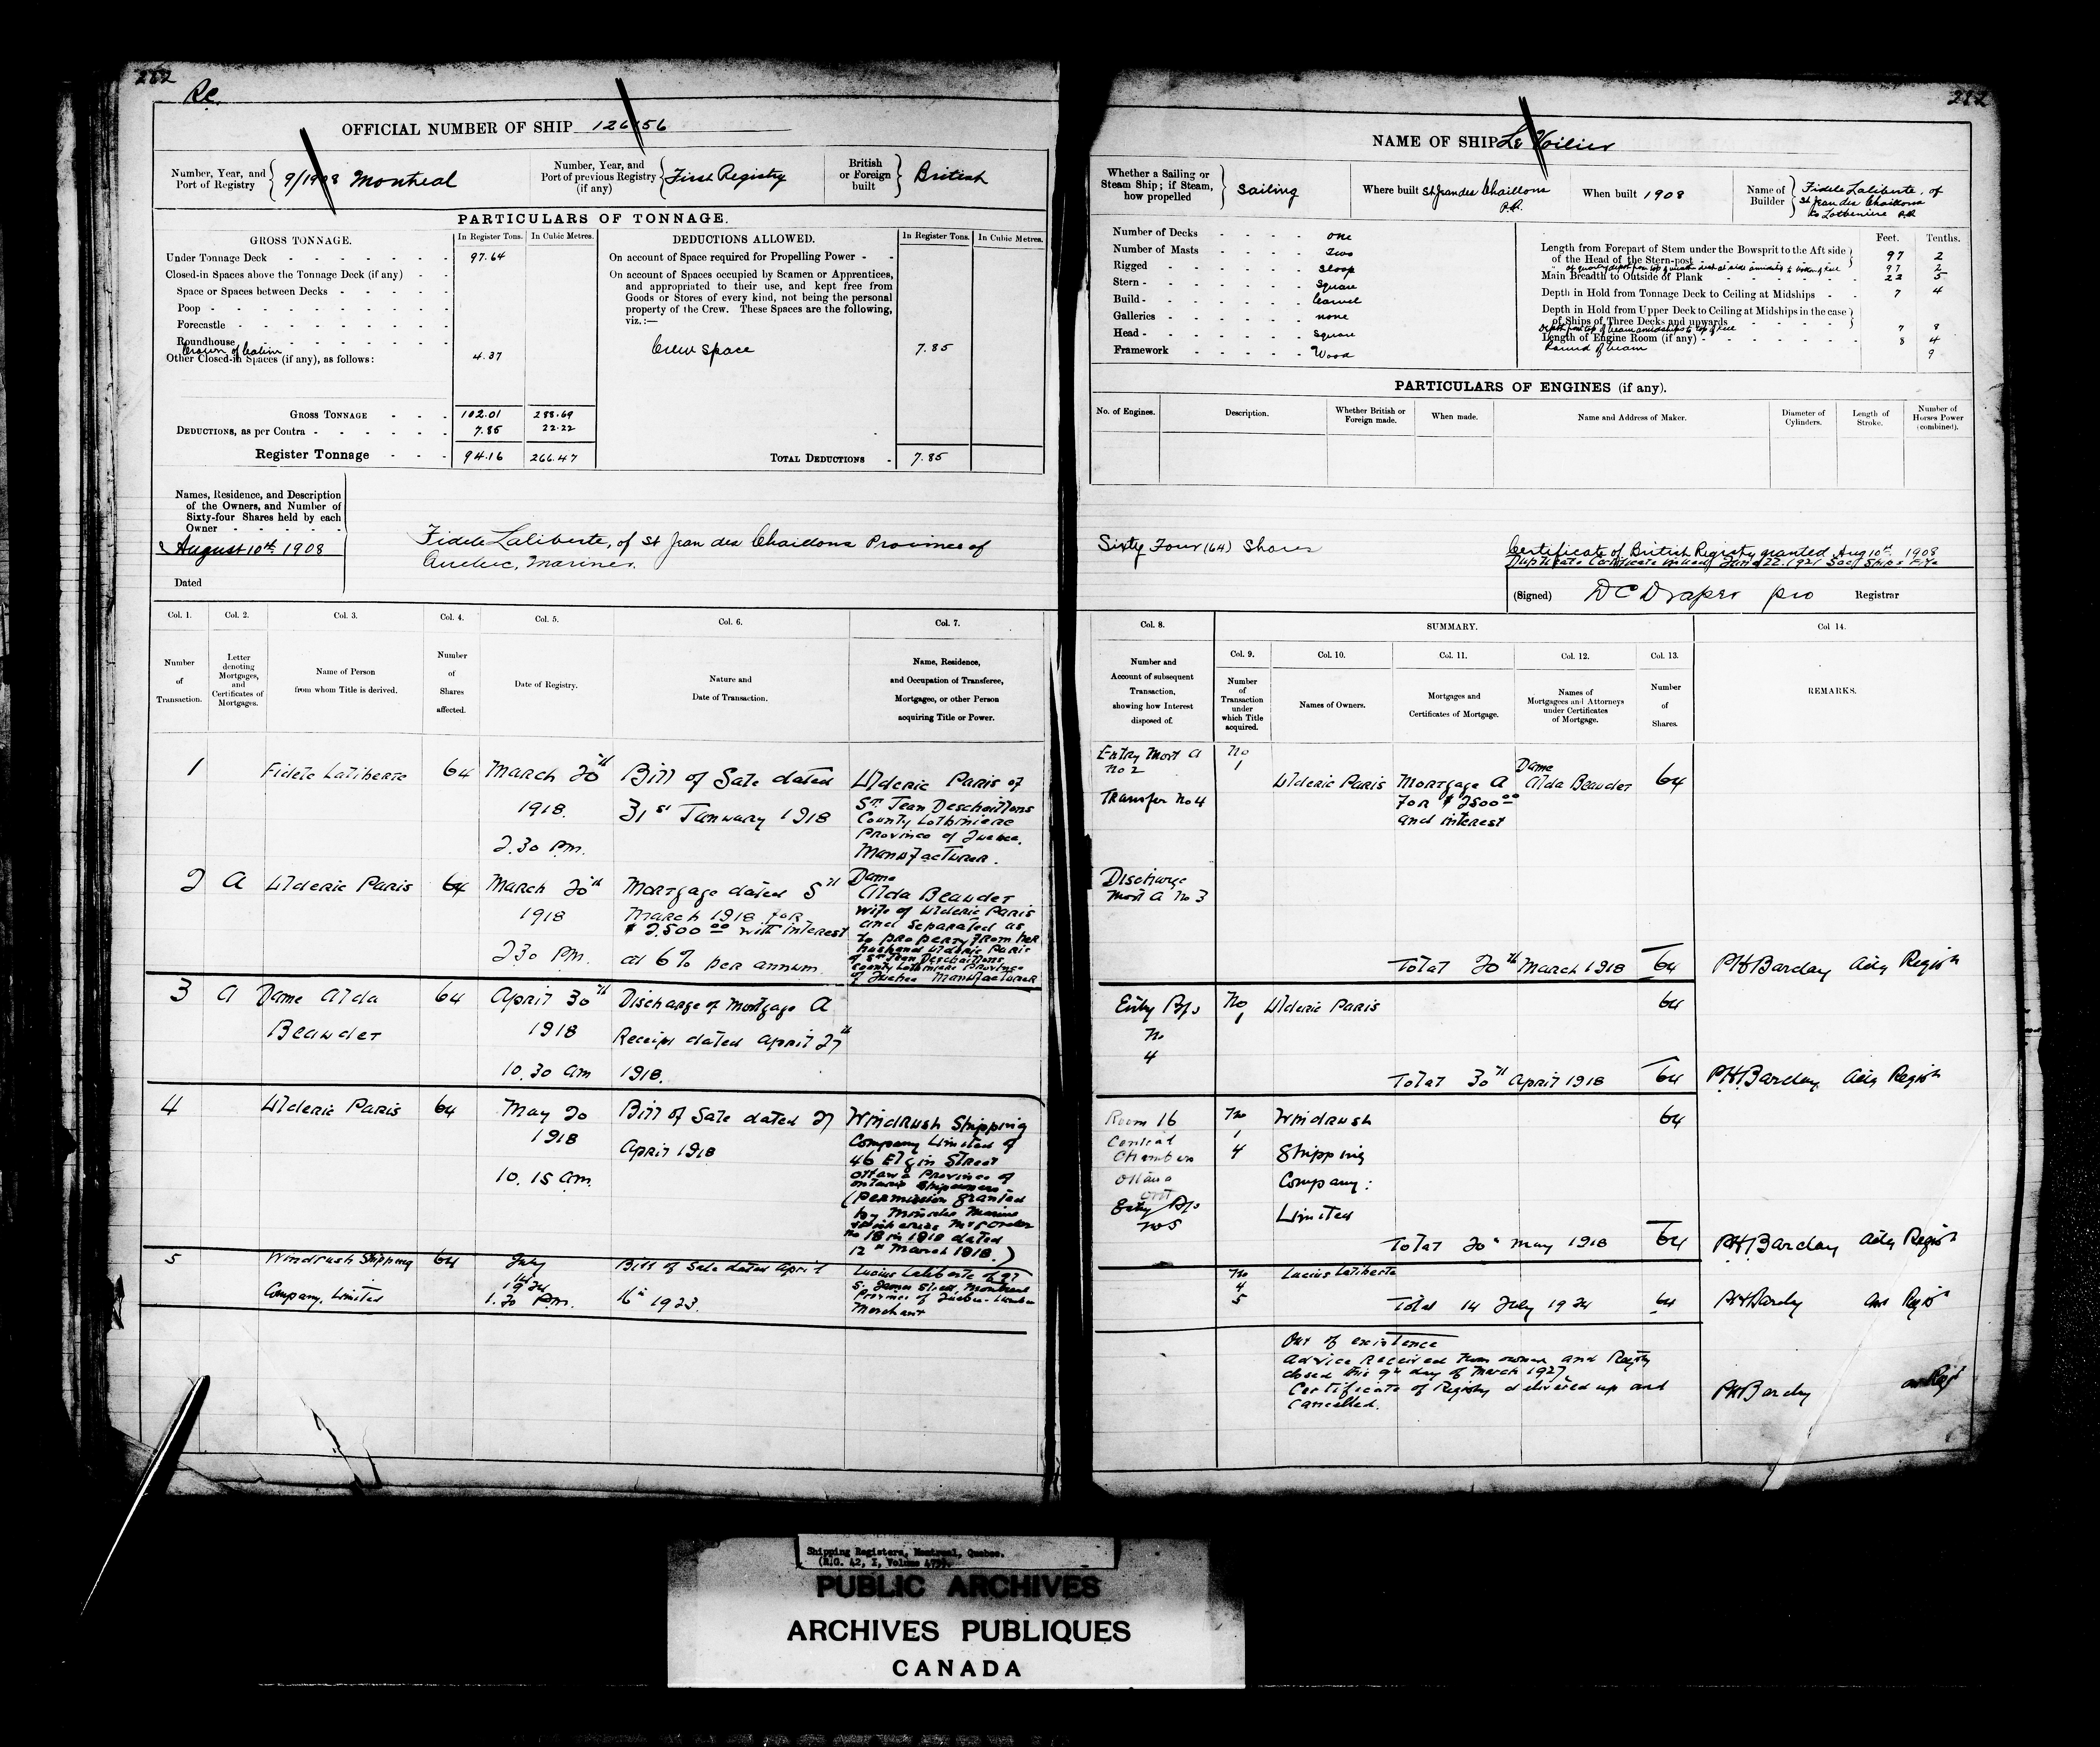 282
Re.
OFFICIAL NUMBER OF SHIP 126156
Number, Year, and Port of Registry 9/1908 Montreal
Number, Year, and Port of previous Registry (if any) First Registry
British or Foreign built British
PARTICULARS OF TONNAGE.
GROSS TONNAGE. In Register Tons. In Cubic Metres.
Under Tonnage Deck 97.64
Closed-in Spaces above the Tonnage Deck (if any)
Space or Spaces between Decks
Poop
Forecastle
Roundhouse
Crown of Cabin
Other Closed-in Spaces (if any), as follows: 4.37
GROSS TONNAGE 102.01 288.69
DEDUCTIONS, as per Contra 7.85 22.22
Register Tonnage 94.16 266.47
DEDUCTIONS ALLOWED. In Register Tons. In Cubic Metres.
On account of Space required for Propelling Power
On account of Spaces occupied by Seamen or Apprentices,
and appropriated to their use, and kept free from
Goods or Stores of every kind, not being the personal
property of the Crew. These Spaces are the following,
viz.:—
Crew space 7.85
TOTAL DEDUCTIONS 7.85
Names, Residence, and Description
of the Owners, and Number of
Sixty-four Shares held by each
Owner
August 10th 1908
Dated
Fidele Laliberte, of St Jean des Chaillons Province of
Quebec, Mariner.
Col. 1. Col. 2. Col. 3. Col. 4. Col. 5. Col. 6. Col. 7.
Number of Transaction.
Letter denoting Mortgages, and Certificates of Mortgages.
Name of Person from whom Title is derived.
Number of Shares affected.
Date of Registry.
Nature and Date of Transaction.
Name, Residence, and Occupation of Transferee, Mortgagee, or other Person acquiring Title or Power.
1 Fidele Laliberte 64 March 20th 1918. 2.30 Pm.
Bill of Sale dated 31st January 1918
Ulderic Paris of
St. Jean Deschaillons
County Lotbiniere
Province of Quebec.
Manufacturer.
2 A Ulderic Paris 64 March 20th 1918 2.30 Pm.
Mortgage dated 5th
March 1918 for
$ 2,500 00 with interest
at 6% per annum
Dame
Alda Beaudet
wife of Ulderic Paris
and separated as
to property from her
husband Ulderic Paris
of St Jean Deschaillons
County Lotbiniere Province
of Quebec Manufacturer
3 A Dame Alda Beaudet 64 April 30th 1918 10.30 am
Discharge of Mortgage A
Receipt dated April 27th
1918.
4 Ulderic Paris 64 May 20 1918 10.15 am.
Bill of Sale dated 27
April 1918
Windrush Shipping
Company Limited of
46 Elgin Street
Ottawa Province of
Ontario Shipowners
(permission granted
by Minister Marine
no 18 in 1918 dated
12th March 1918.)
5 Windrush Shipping Company, Limited 64 July 14th 1924 1.30 P.m.
Bill of Sale dated April
16th 1923.
Lucius Laliberte of 97
St. James Street, Montreal
Province of Quebec Lumber
Merchant
282
NAME OF SHIP Le Voilier
Whether a Sailing or Steam Ship; if Steam, how propelled Sailing
Where built St Jean des Chaillons P.Q.
When built 1908
Name of Builder Fidele Laliberte, of
St Jean des Chaillons
Co Lotbiniere P.Q.
Number of Decks one
Number of Masts Two
Rigged Sloop
Stern Square
Build Carvel
Galleries none
Head Square
Framework Wood
Feet. Tenths.
Length from Forepart of Stem under the Bowsprit to the Aft side
of the Head of the Stern-post 97 2
97 2
Main Breadth to Outside of Plank 22 5
Depth in Hold from Tonnage Deck to Ceiling at Midships 7 4
Depth in Hold from Upper Deck to Ceiling at Midships in the case
of Ships of Three Decks and upwards
Depth from top of beam amidships to top of keel 7 8
Length of Engine Room (if any) 8 4
Round of beam 9
PARTICULARS OF ENGINES (if any).
No. of Engines. Description. Whether British or Foreign made. When made. Name and Address of Maker. Diameter of Cylinders. Length of Stroke. Number of Horses Power (combined).
Sixty Four (64) Shares
Certificate of British Registry granted Aug 10th 1908
Duplicate Certificate issued June 22. 1921 See Ships File
(Signed) DC Draper pro Registrar
Col. 8. SUMMARY. Col 14.
Col. 9. Col. 10. Col. 11. Col. 12. Col. 13.
Number and Account of subsequent Transaction, showing how Interest disposed of.
Number of Transaction under which Title acquired.
Names of Owners.
Mortgages and Certificates of Mortgage.
Names of Mortgagees and Attorneys under Certificates of Mortgage.
Number of Shares.
REMARKS.
Entry Mort A
No 2
Transfer No 4
No 1 Ulderic Paris
Mortgage A
for $ 2500 00
and interest
Dame
Alda Beaudet 64
Discharge
Mort A No 3
Total 20th March 1918 64 PH Barclay Actg Registr
Entry B/s
No
4
No 1 Ulderic Paris 64
Total 30th April 1918 64 PH Barclay Actg Registr
Room 16
Central
Chambers
Ottawa
Ont
Entry B/s
No 5
No
1
4
Windrush
Shipping
Company:
Limited 64
Total 20th May 1918 64 PH Barclay Actg Registr
No
4
5
Lucius Laliberte
Total 14 July 1924 64 PH Barclay Registr
Out of existence
Advice received from owner and Registry
closed this 9th day of March 1927
Certificate of Registry delivered up and
Cancelled.
PH Barclay
Shipping Registers, Montreal, Quebec.
(R.G. 42, I, Volume
PUBLIC ARCHIVES
ARCHIVES PUBLIQUES
CANADA